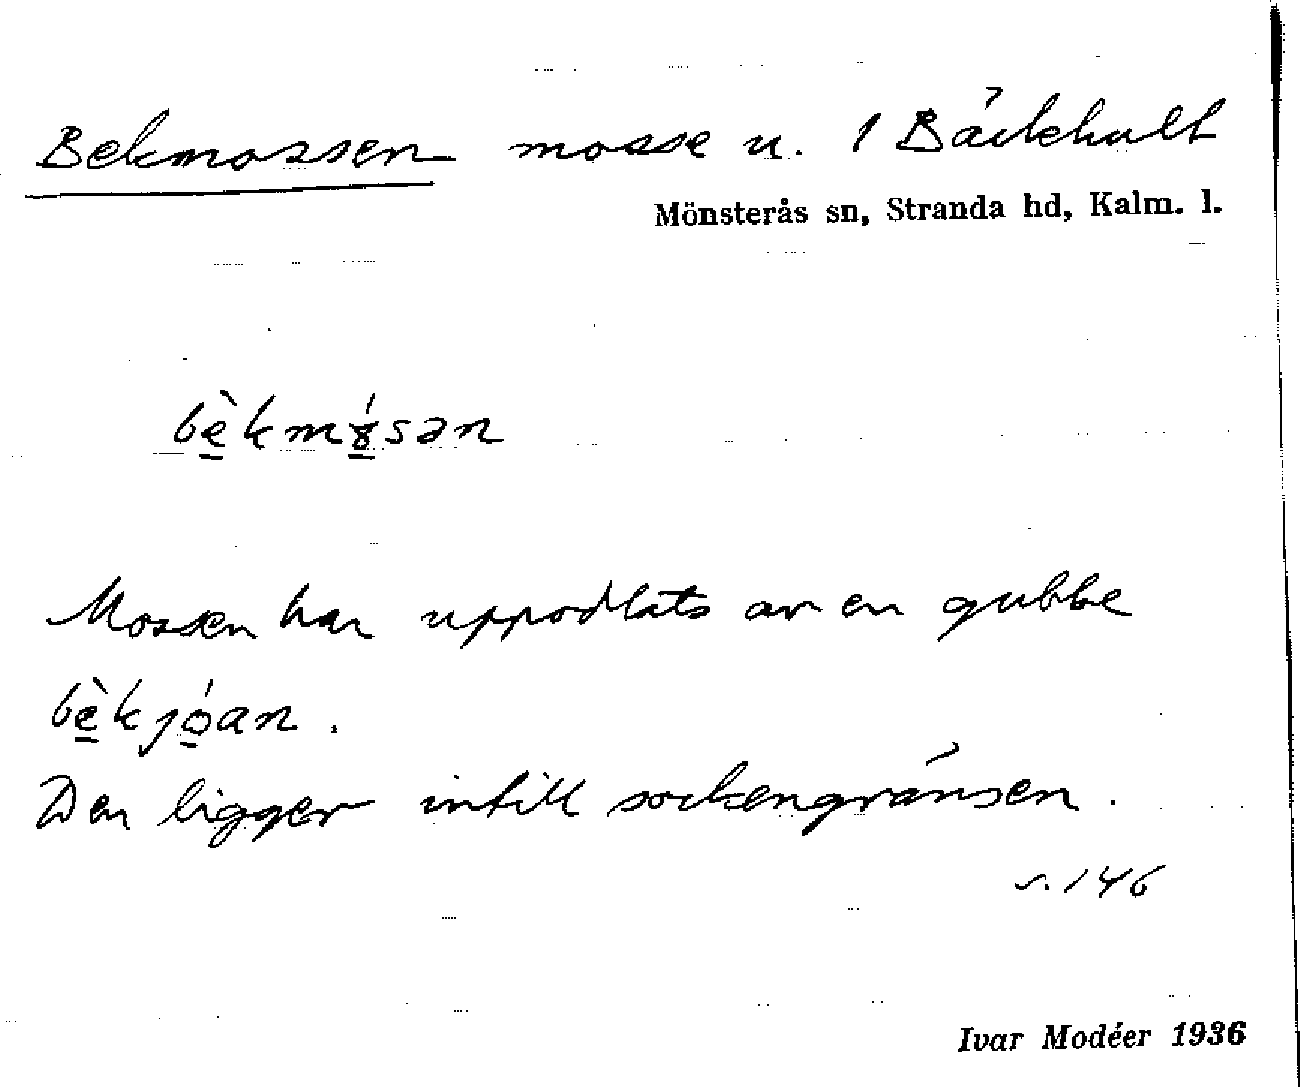 Bekmossen mosse u. 1 Bäckhult
Mönsterås sn, Stranda hd, Kalm. l.
bè̱km8̱́sən
Mossen har uppodlats av en gubbe
bè̱kjó̱an.
Den ligger intill sockengränsen.
s. 146
Ivar Modéer 1936